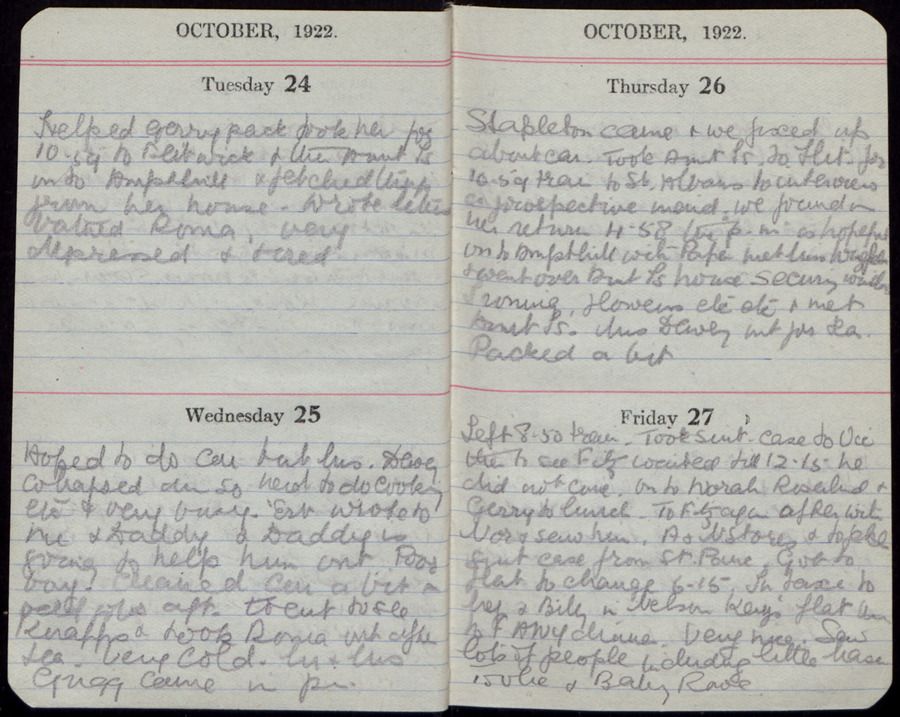 OCTOBER, 1922.
Tuesday 24
Helped Gerry pack took her for
10.59 to Flitwick & then Aunt Is
on to Ampthill & fetched
from her house. Wrote letters
Roma, very
depressed & tired
Wednesday 25
Hoped to do car but Mrs. Dewey
collapsed so had to do cooking
etc & very busy. wrote to
me & Daddy & Daddy is
going to help him out Poor
boy. Cleaned car a bit &
aft. Went to see
Knapps & took Roma out after
tea. Very cold. Mr & Mrs
Grigg came in
OCTOBER, 1922.
Thursday 26
Stapleton came & we fixed up
about car. Took Aunt Is. to Flit. for
10.59 train to St. Albans to interview
a prospective maid, we found on
her return 4.58 p.m. is hopeful
on to Ampthill with Papa met
& went over Aunt Is house
flowers etc etc & met
Aunt Is. Mrs Dewey out for tea.
Packed a bit
Friday 27
Left 8.50 train. Took suit case to Vic
then to see Fitz waited till 12.15 he
did not come. on to Norah Rosalind &
Gerry to lunch. To Fitz again after with
Nor & saw him. A & N Stores &
suit case from St. Panc. Got to
flat to change 6.15. In taxi to
& Billy in Nelson Keys flat
to dinner. Very nice. Saw
lots of people including little
& Baby